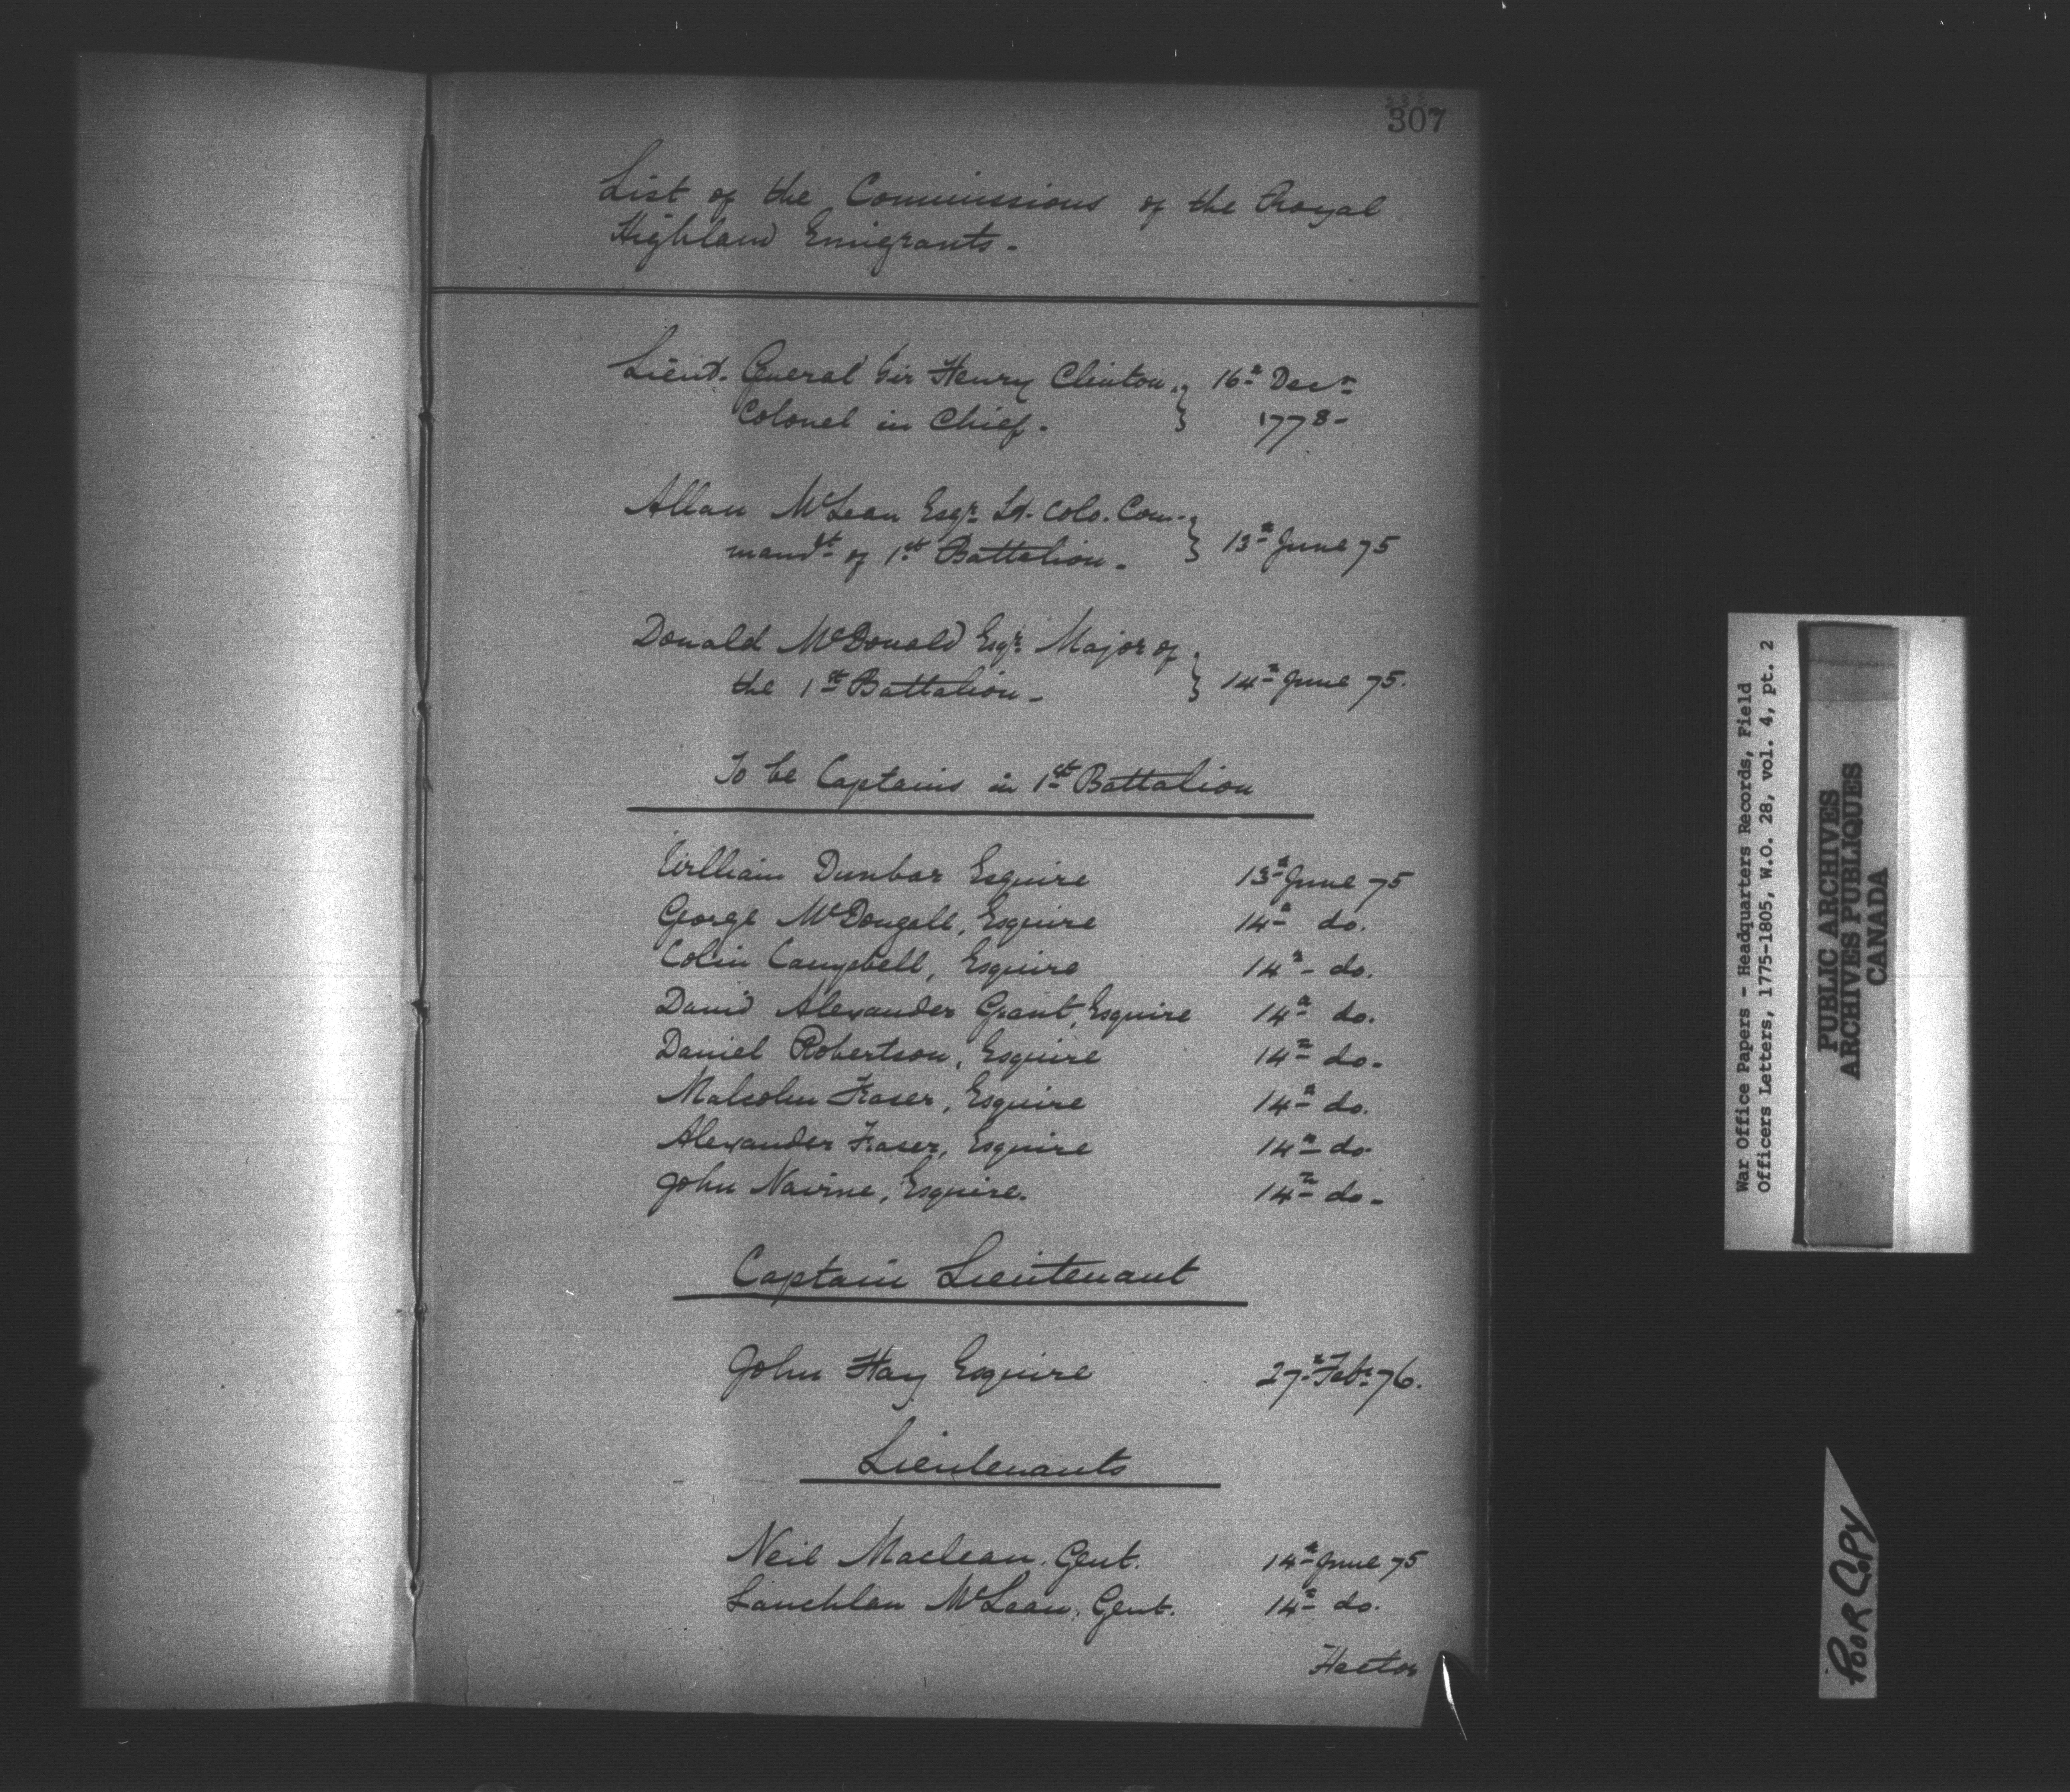 307
List of the Commissions of the Royal
Highland Emigrants -
Lieut. General Sir Henry Clinton, } 16th Decr
Colonel in Chief. } 1778 -
Allan McLean Esqr. Lt. Colo. Com- }
mandt of 1st Battalion - } 13th June 75
Donald McDonald Esqr. Major of }
the 1st Battalion - } 14th June 75.
To be Captains in 1st Battalion
William Dunbar Esquire 13th June 75
George McDougall, Esquire 14th do.
Colin Campbell, Esquire 14th - do.
David Alexander Grant, Esquire 14th do.
Daniel Robertson, Esquire 14th do -
Malcolm Fraser, Esquire 14th do.
Alexander Fraser, Esquire 14th do
John Nairne, Esquire. 14th do -
Captain Lieutenant
John Hay Esquire 27th Feb: 76.
Lieutenants
Neil Maclean. Gent. 14th June 75
Lauchlan McLean, Gent. 14th do.
Hector
War Office Papers - Headquarters Records, Field
Officers Letters, 1775-1805, W.O. 28, vol. 4, pt. 2
PUBLIC ARCHIVES
ARCHIVES PUBLIQUES
CANADA
POOR COPY